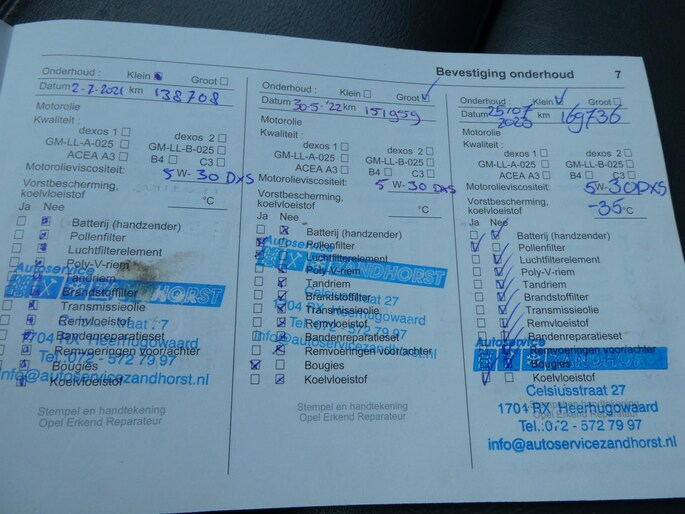 Bevestiging onderhoud 7
Onderhoud : Klein Groot
Datum 2-7-2021 km 138708
Motorolie
Kwaliteit :
dexos 1 dexos 2
GM-LL-A-025 GM-LL-B-025
ACEA A3 B4 C3
Motorolieviscositeit: 5 W- 30 DXS
Vorstbescherming,
koelvloeistof °C
Ja Nee
Batterij (handzender)
Pollenfilter
Luchtfilterelement
Poly-V-riem
Tandriem
Brandstoffilter
Transmissieolie
Remvloeistof
Bandenreparatieset
Remvoeringen voor/achter
Bougies
Koelvloeistof
Autoservice
HORST
1704 RX Heerhugowaard
Tel. 072 - 572 79 97
info@autoservicezandhorst.nl
Stempel en handtekening
Opel Erkend Reparateur
Onderhoud : Klein Groot
Datum 30-5-'22 km 151959
Motorolie
Kwaliteit :
dexos 1 dexos 2
GM-LL-A-025 GM-LL-B-025
ACEA A3 B4 C3
Motorolieviscositeit: 5 W- 30 DXS
Vorstbescherming,
koelvloeistof °C
Ja Nee
Batterij (handzender)
Pollenfilter
Luchtfilterelement
Poly-V-riem
Tandriem
Brandstoffilter
Transmissieolie
Remvloeistof
Bandenreparatieset
Remvoeringen voor/achter
Bougies
Koelvloeistof
Autoservice
ZANDHORST
Celsiusstraat 27
1704 RX Heerhugowaard
Tel. 072 - 572 79 97
info@autoservicezandhorst.nl
Stempel en handtekening
Opel Erkend Reparateur
Onderhoud : Klein Groot
Datum 25-07 2023 km 169736
Motorolie
Kwaliteit :
dexos 1 dexos 2
GM-LL-A-025 GM-LL-B-025
ACEA A3 B4 C3
Motorolieviscositeit: 5W-30DXS
Vorstbescherming,
koelvloeistof -35 °C
Ja Nee
Batterij (handzender)
Pollenfilter
Luchtfilterelement
Poly-V-riem
Tandriem
Brandstoffilter
Transmissieolie
Remvloeistof
Bandenreparatieset
Remvoeringen voor/achter
Bougies
Koelvloeistof
Autoservice
ZANDHORST
Celsiusstraat 27
1704 RX Heerhugowaard
Tel.:072 - 572 79 97
info@autoservicezandhorst.nl
Stempel en handtekening
Opel Erkend Reparateur